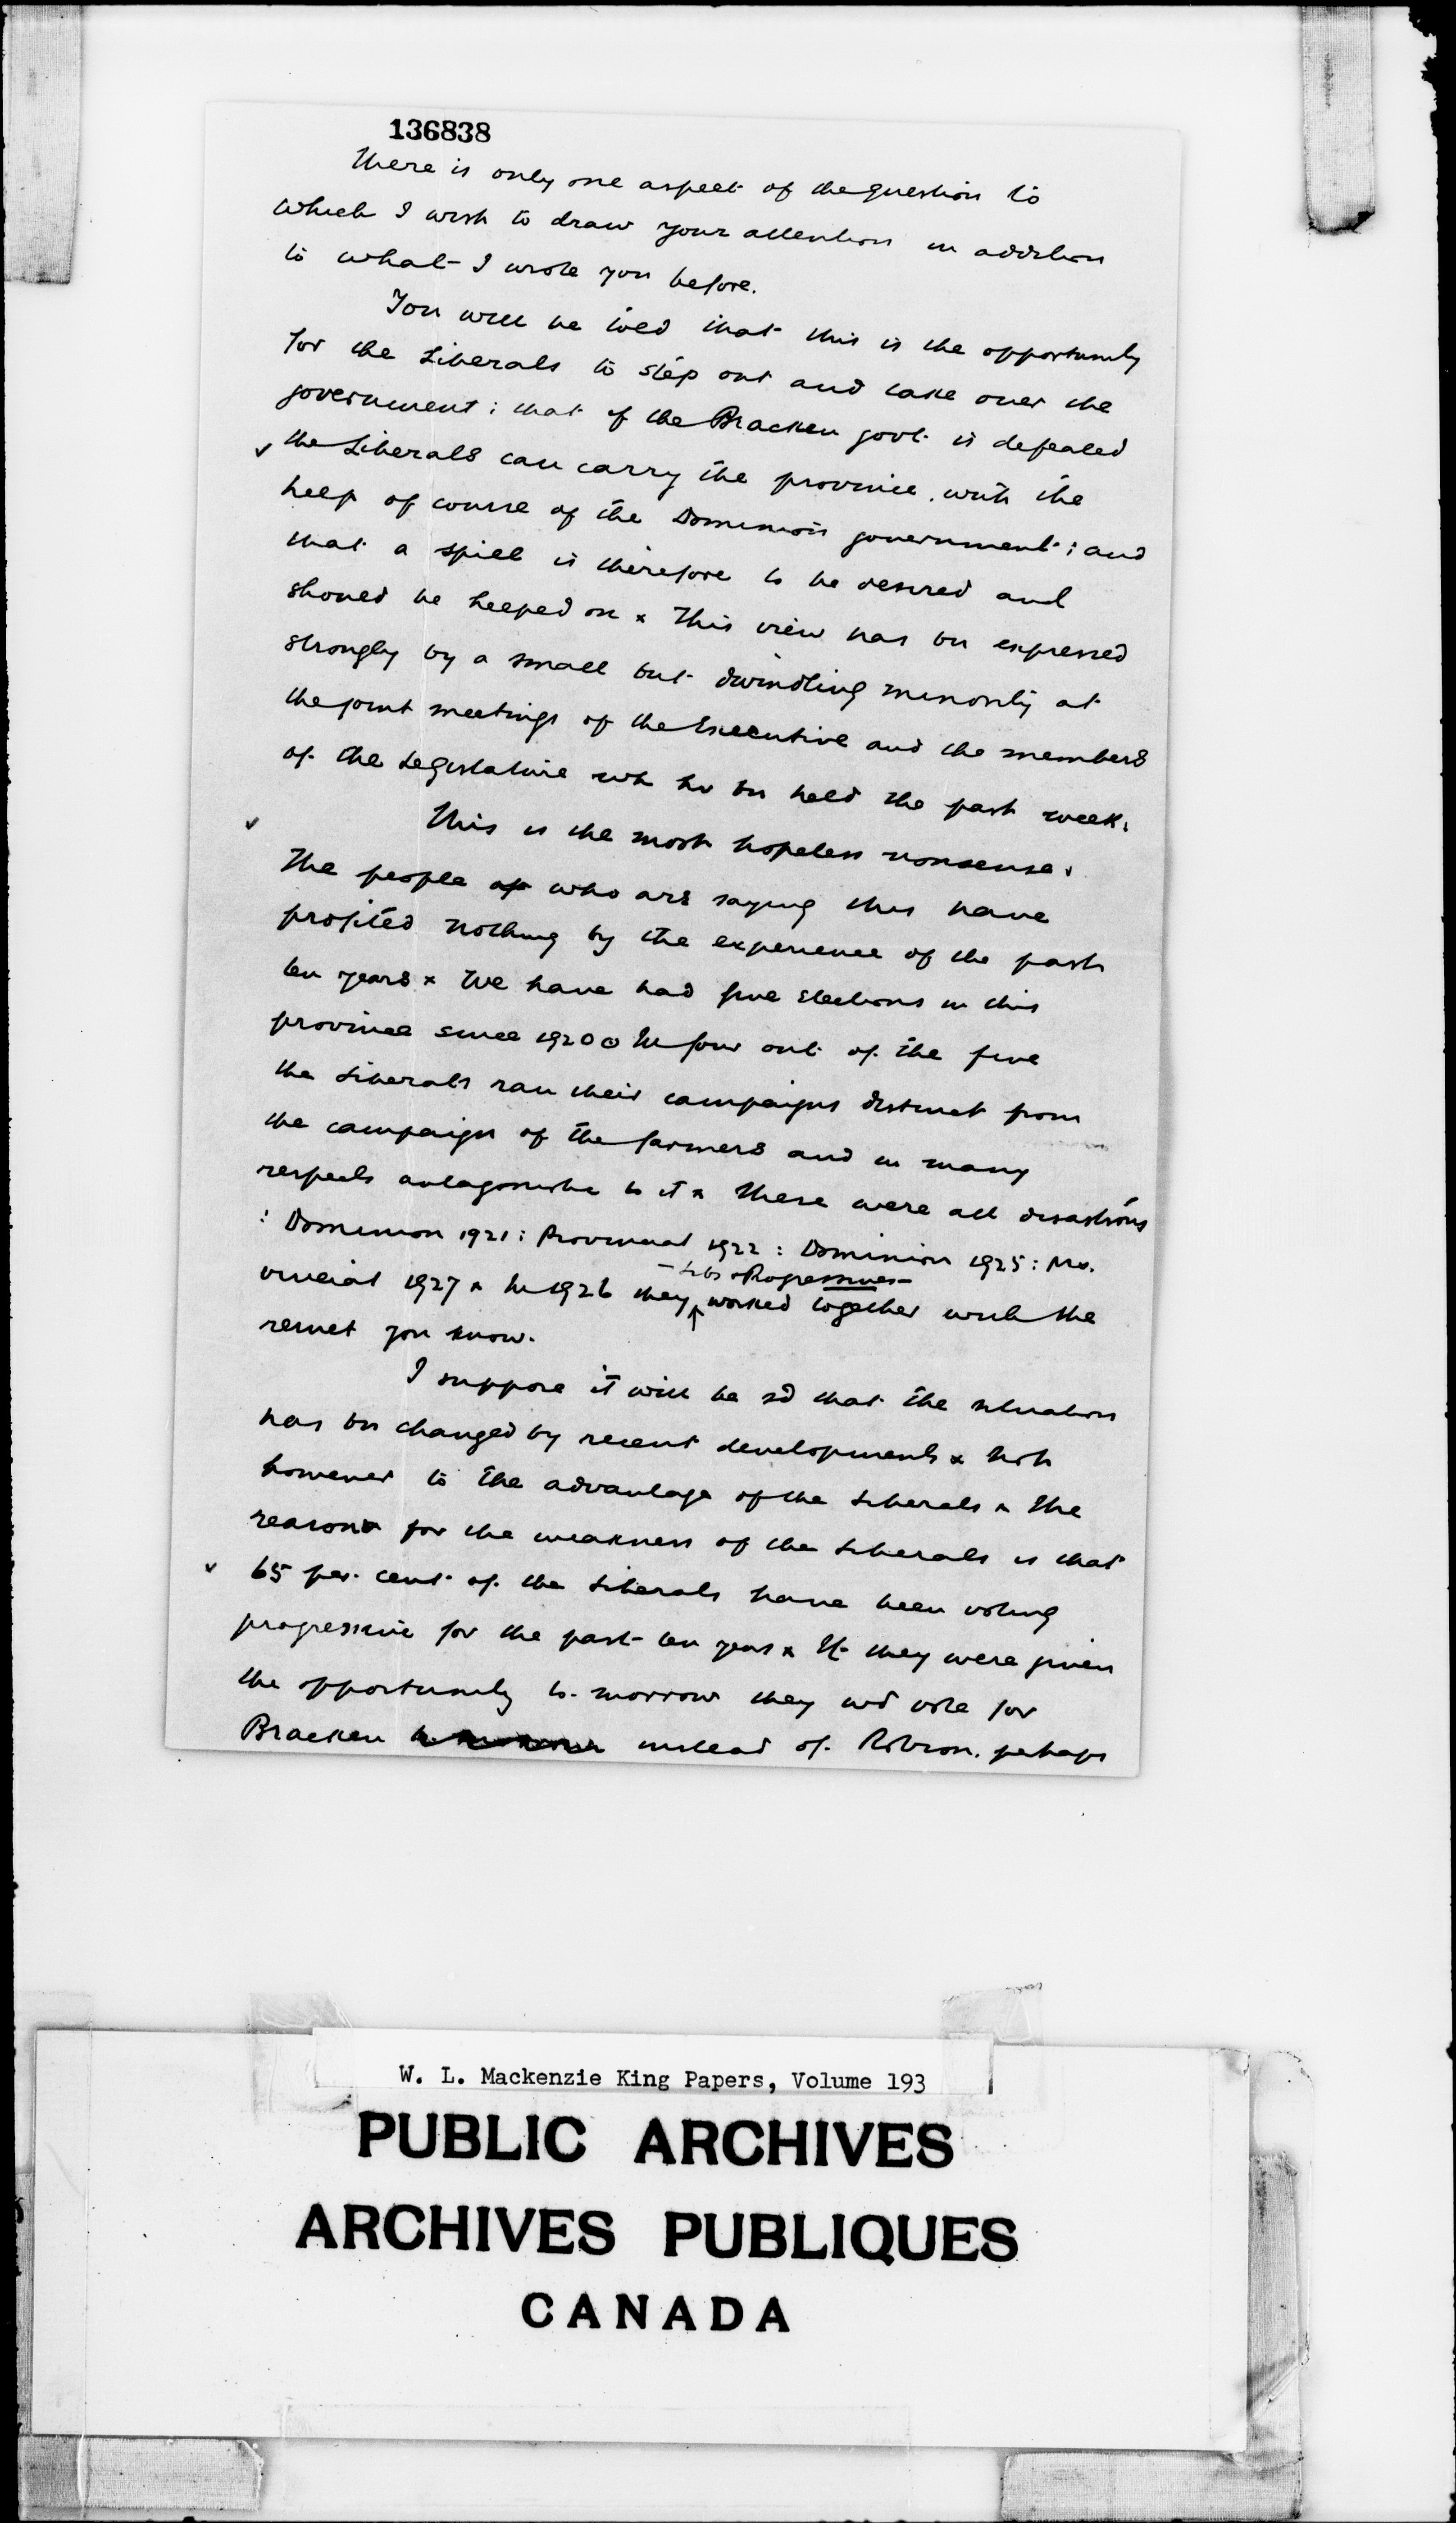 136838
There is only one aspect of the question to
which I wish to draw your attention in addition
to what I wrote you before.
You will be told that this is the opportunity
for the Liberals to step out and take over the
government; that if the Bracken govt. is defeated
the Liberals can carry the province, with the
help of course of the Dominion government; and
that a spill is therefore to be desired and
should be helped on x This view has bn expressed
strongly by a small but dwindling minority at
the joint meetings of the Executive and the members
of the Legislature wh hv bn held the past week.
This is the most hopeless nonsense.
The people who are saying this have
profited nothing by the experience of the past
ten years x We have had five elections in this
province since 1920 In four out of the five
the Liberals ran their campaigns distinct from
the campaign of the farmers and in many
respects antagonistic to it x These were all disastrous
: Dominion 1921: Provincial 1922: Dominion 1925: Pro-
vincial 1927 x In 1926 they – Libs & Progressives – worked together with the
result you know.
I suppose it will be sd that the situation
has bn changed by recent developments x Not
however to the advantage of the Liberals x The
reason for the weakness of the Liberals is that
65 per. cent of the Liberals have been voting
progressive for the past ten years x If they were given
the opportunity to-morrow they wd vote for
Bracken instead of Robson. perhaps
W. L. Mackenzie King Papers, Volume 193
PUBLIC ARCHIVES
ARCHIVES PUBLIQUES
CANADA